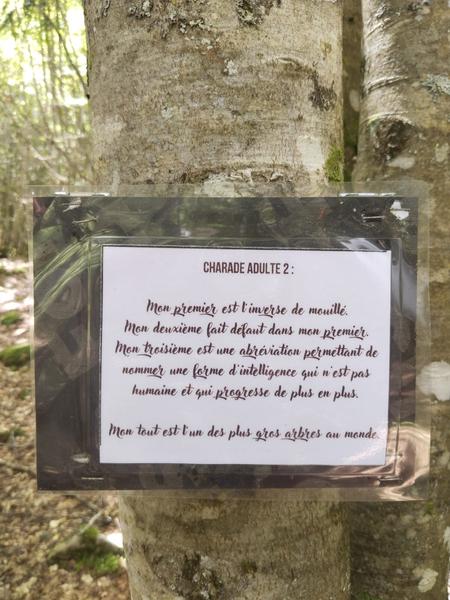 CHARADE ADULTE 2 :
Mon premier est l'inverse de mouillé.
Mon deuxième fait défaut dans mon premier.
Mon troisième est une abréviation permettant de
nommer une forme d'intelligence qui n'est pas
humaine et qui progresse de plus en plus.
Mon tout est l'un des plus gros arbres au monde.